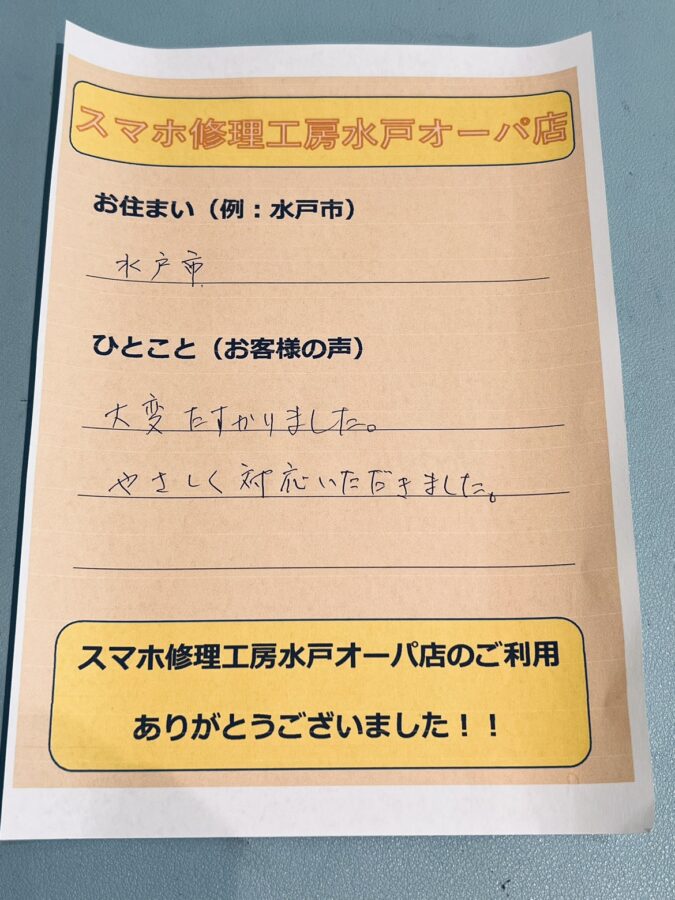 スマホ修理工房水戸オーパ店
お住まい（例：水戸市）
水戸市
ひとこと（お客様の声）
大変たすかりました。
やさしく対応いただきました。
スマホ修理工房水戸オーパ店のご利用
ありがとうございました！！